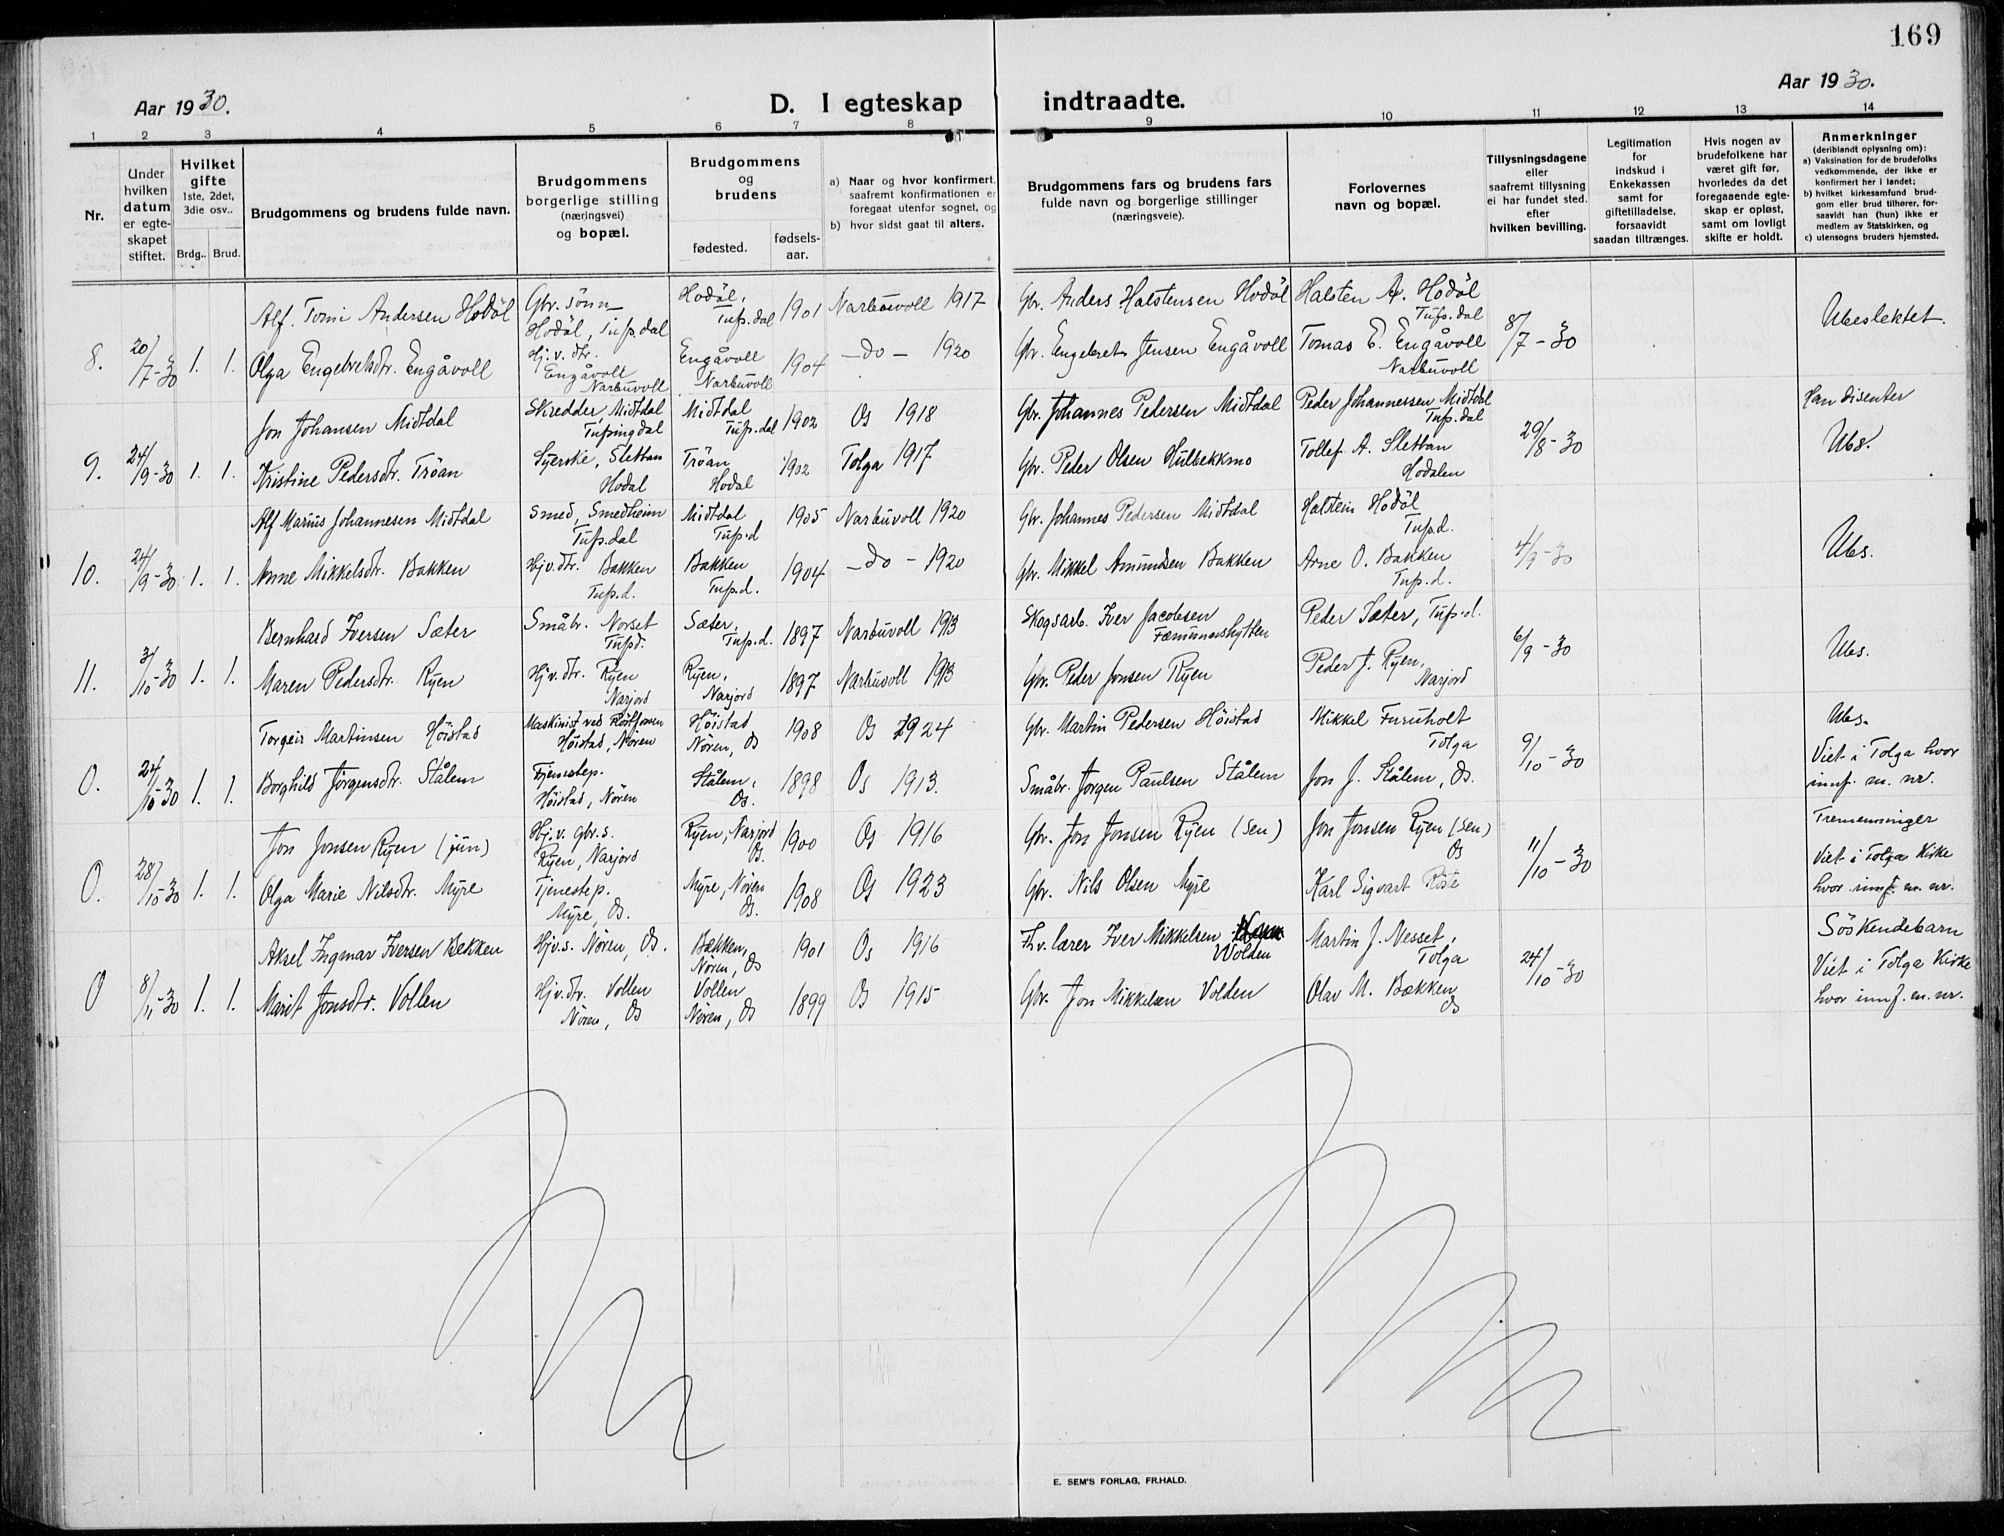 169
Aar 1930.
D. I egteskap indtraadte.
Aar 1930.
1 2 3 4 5 6 7 8 9 10 11 12 13 14
Nr.
Under
hvilken
datum
er egte-
skapet
stiftet.
Hvilket
gifte
1ste, 2det,
3die osv..
Brdg.. Brud.
Brudgommens og brudens fulde navn.
Brudgommens
borgerlige stilling
(næringsvei)
og bopæl.
Brudgommens
og
brudens
fødested.
fødsels-
aar.
a) Naar og hvor konfirmert,
saafremt konfirmationen er
foregaat utenfor sognet, og
b) hvor sidst gaat til alters.
Brudgommens fars og brudens fars
fulde navn og borgerlige stillinger
(næringsveie).
Forlovernes
navn og bopæl.
Tillysningsdagene
eller
saafremt tillysning
ei har fundet sted.
efter
hvilken bevilling.
Legitimation
for
indskud i
Enkekassen
samt for
giftetilladelse,
forsaavidt
saadan tiltrænges.
Hvis nogen av
brudefolkene har
været gift før,
hvorledes da det
foregaaende egte-
skap er opløst,
samt om lovligt
skifte er holdt.
Anmerkninger
(deriblandt oplysning om):
a) Vaksination for de brudefolks
vedkommende, der ikke er
konfirmert her i landet;
b) hvilket kirkesamfund brud-
gom eller brud tilhører, for-
saavidt han (hun) ikke er
medlem av Statskirken, og
c) utensogns bruders hjemsted.
8. 20/7-30 1. 1.
Alf. Toni Andersen Hodöl
Gbr. sönn
Hodöl, Tufs.dal
Hodöl,
Tufs.dal
1901 Narbuvoll 1917
Gbr. Anders Halstensen Hodöl
Halsten A. Hodöl
Tufs.dal
8/7-30
Ubeslektet.
Olga Engebretsdtr. Engåvoll
Hj.v. dtr.
Engåvoll
Narbuvoll
Engåvoll
Narbuvoll
1904 -do- 1920
Gbr. Engebret Jensen Engåvoll
Tomas E. Engåvoll
Narbuvoll
9. 24/9-30 1. 1.
Jon Johansen Midtdal
Skredder, Midtdal
Tufsingdal
Midtdal
Tufs.dal
1902 Os 1918
Gbr. Johannes Pedersen Midtdal
Peder Johannessen Midtdal
Tufs.dal
29/8-30
Han disenter
Kristine Pedersdtr. Tröan
Syerske, Slettan
Hodal
Tröan
Hodal
1902 Tolga 1917
Gbr. Peder Olsen Hulbekkmo
Tollef A. Slettan
Hodalen
Ubs.
10. 24/9-30 1. 1.
Alf Marius Johannesen Midtdal
Smed, Smedheim
Tufs.dal
Midtdal
Tufs.d
1905 Narbuvoll 1920
Gbr. Johannes Pedersen Midtdal
Halstein Hodöl
Tufs.d.
4/9-30
Ubs.
Anne Mikkelsdtr. Bakken
Hjv.dtr. Bakken
Tufs.d.
Bakken
Tufs.d.
1904 -do- 1920
Gbr. Mikkel Amundsen Bakken
Arne O. Bakken
Tufs.d.
11. 3/10-30 1. 1.
Bernhard Iversen Sæter
Småbr. Norset
Tufsd.
Sæter,
Tufs.d.
1897 Narbuvoll 1913
Skogsarb. Iver Jacobsen
Fæmundshytten
Peder Sæter, Tufs.d.
6/9-30
Ubs.
Maren Pedersdtr. Ryen
Hjv.dtr. Ryen
Narjord
Ryen,
Narjord
1897 Narbuvoll 1913
Gbr. Peder Jonsen Ryen
Peder J. Ryen,
Narjord
O. 24/10-30 1. 1.
Torgeir Martinsen Höistad
Maskinist ved
Höistad, Nören
Höistad
Nören, Os
1908 Os 1924
Gbr. Martin Pedersen Höistad
Mikkel Furuholt
Tolga
9/10-30
Ubs.
Viet i Tolga hvor
innf. m. nr.
Borghild Jörgensdtr. Stålem
Tjenestep.
Höistad, Nören
Stålem,
Os.
1898 Os 1913.
Småbr. Jörgen Paulsen Stålem
Jon J. Stålem, Os.
O. 28/10-30 1. 1.
Jon Jonsen Ryen (jun)
Hj.v. gbr.s.
Ryen, Narjord
Ryen, Narjord
Os.
1900 Os 1916
Gbr. Jon Jonsen Ryen (sen)
Jon Jonsen Ryen (sen)
Os
11/10-30
Tremenninger
Viet i Tolga Kirke
hvor innf. m. nr.
Olga Marie Nilsdtr. Myre
Tjenestep.
Myre, Os.
Myre, Nören
Os.
1908 Os 1923
Gbr. Nils Olsen Myre
Karl Sigvart Röste
O 8/11-30 1. 1.
Aksel Ingmar Iversen Bekken
Hjv.s. Nören, Os.
Bækken,
Nören, Os
1901 Os 1916
Fh.v. lærer Iver Mikkelsen
Wolden
Martin J. Nesset,
Tolga
24/10-30
Söskendebarn
Viet i Tolga Kirke
hvor innf. m. nr.
Marit Jonsdtr. Vollen
Hjv.dtr. Vollen
Nören, Os
Vollen
Nören, Os
1899 Os 1915
Gbr. Jon Mikkelsen Volden
Olav M. Bækken
Os
E. SEM'S FORLAG, FR.HALD.